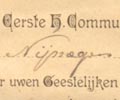 Eerste H. Commu
Nijmegen
r uwen Geestelijken